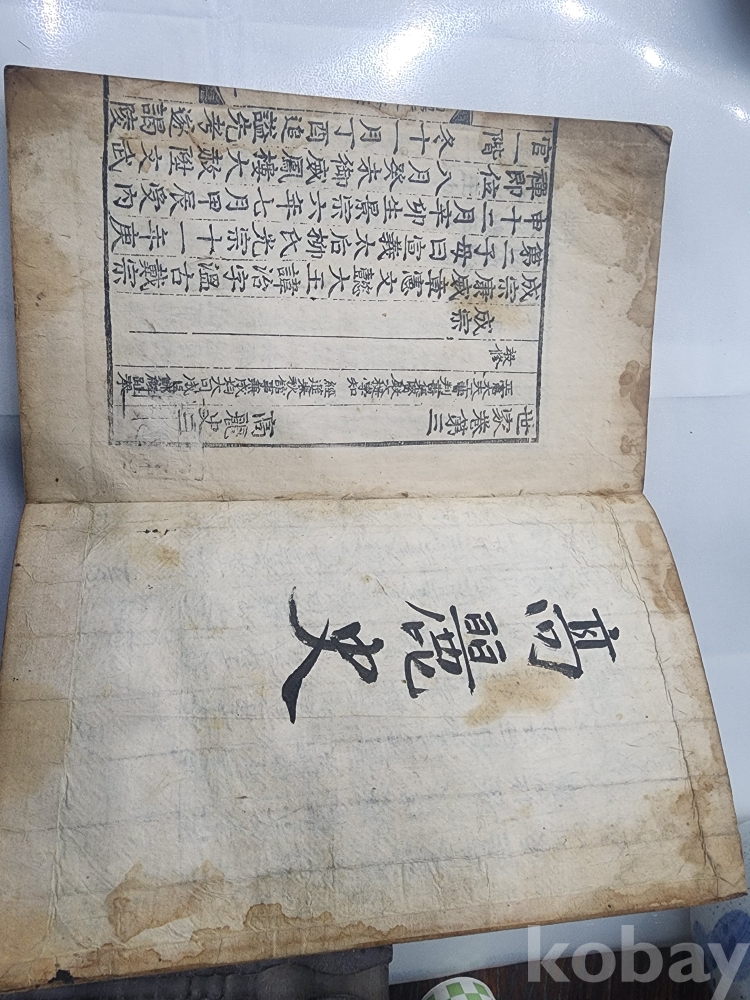 高麗史
世家卷第三 高麗史三
正憲大夫工曹判書集賢殿大提學知
經筵春秋館事兼成均大司成臣鄭麟趾奉
敎修
成宗
成宗康威章憲文懿大王諱治字溫古戴宗
第二子母曰宣義太后柳氏光宗十一年庚
申十二月辛卯生景宗六年七月甲辰受內
禪卽位八月癸未御威鳳樓大赦陞文武
官一階冬十一月丁酉追謚先考遂謁陵
kobay